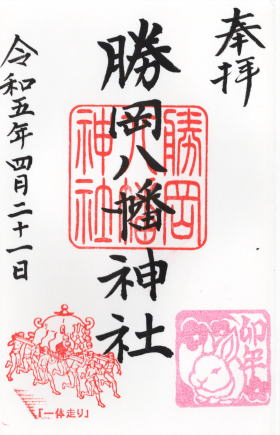 奉拝
勝岡八幡神社
勝岡八幡神社
令和五年四月二十一日
卯年
「一体走り」